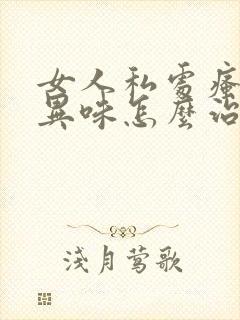 女人私處瘙
異味怎麼治
淺月莺歌